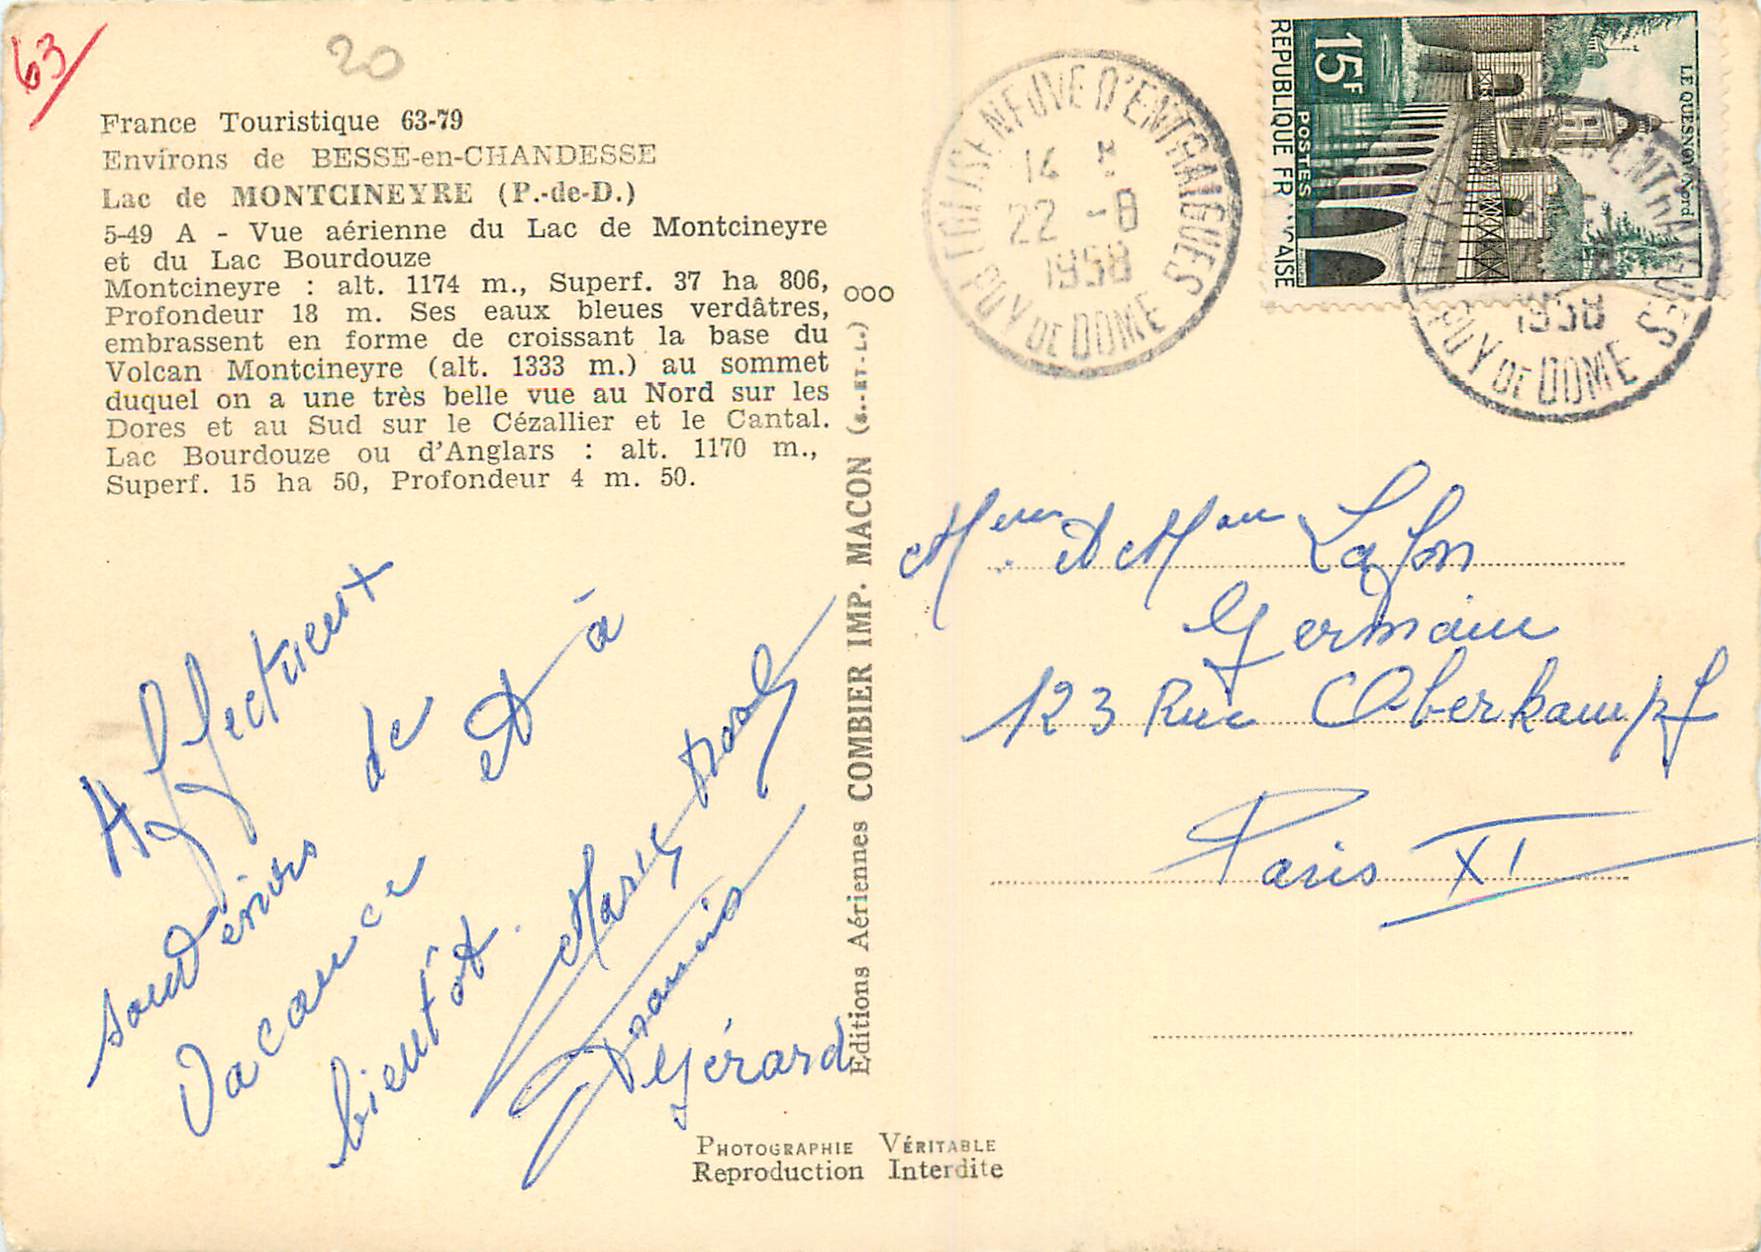 63
20
France Touristique 63-79
Environs de BESSE-en-CHANDESSE
Lac de MONTCINEYRE (P.-de-D.)
5-49 A - Vue aérienne du Lac de Montcineyre
et du Lac Bourdouze
Montcineyre : alt. 1174 m., Superf. 37 ha 806,
Profondeur 18 m. Ses eaux bleues verdâtres,
embrassent en forme de croissant la base du
Volcan Montcineyre (alt. 1333 m.) au sommet
duquel on a une très belle vue au Nord sur les
Dores et au Sud sur le Cézallier et le Cantal.
Lac Bourdouze ou d'Anglars : alt. 1170 m.,
Superf. 15 ha 50, Profondeur 4 m. 50.
Affectueux
souvenirs de
Vacance et à
bientôt.
Francis
Gérard
Editions Aériennes COMBIER IMP. MACON (S.-ET-L.) ooo
PHOTOGRAPHIE VÉRITABLE
Reproduction Interdite
EGLISENEUVE D'ENTRAIGUES
14 H
22 -8
1958
PUY DE DOME
15F
POSTES
REPUBLIQUE FRANÇAISE
LE QUESNOY Nord
1958
PUY DE DOME
et Lafon
Germain
123 Rue Oberkampf
Paris XI